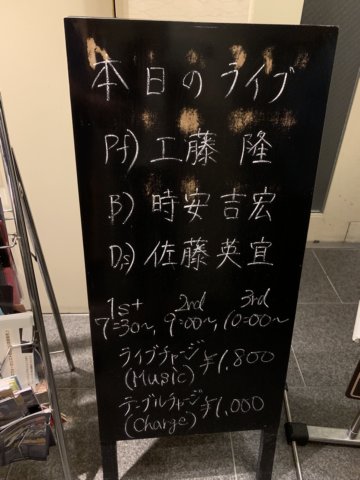 本日のライブ
Pf) 工藤 隆
B) 時安吉宏
Ds) 佐藤英宜
1st 2nd 3rd
7:30〜, 9:00〜, 10:00〜
ライブチャージ ¥1,800
(Music)
テーブルチャージ ¥1,000
(Charge)